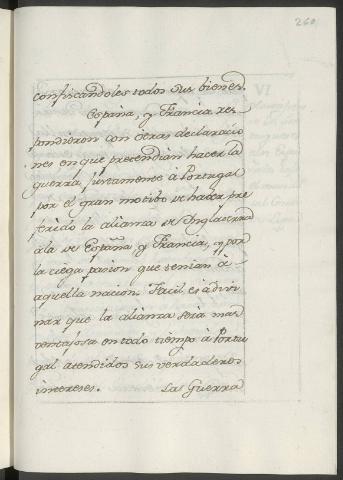 260
confiscandoles todos sus bienes.
España, y Francia res
pondieron con otras declaracio
nes en que pretendian hacer la
guerra justamente à Portugal
por el gran motibo de hacer pre
ferido la alianza de Inglaterra
à la de España y Francia, y por
la ciega pasion que tenian à
aquella nacion. Facil es àdivi
nar que la alianza seria mas
ventajosa en todo tiempo à Portu
gal atendidos sus verdaderos
intereses. La Guerra
VI